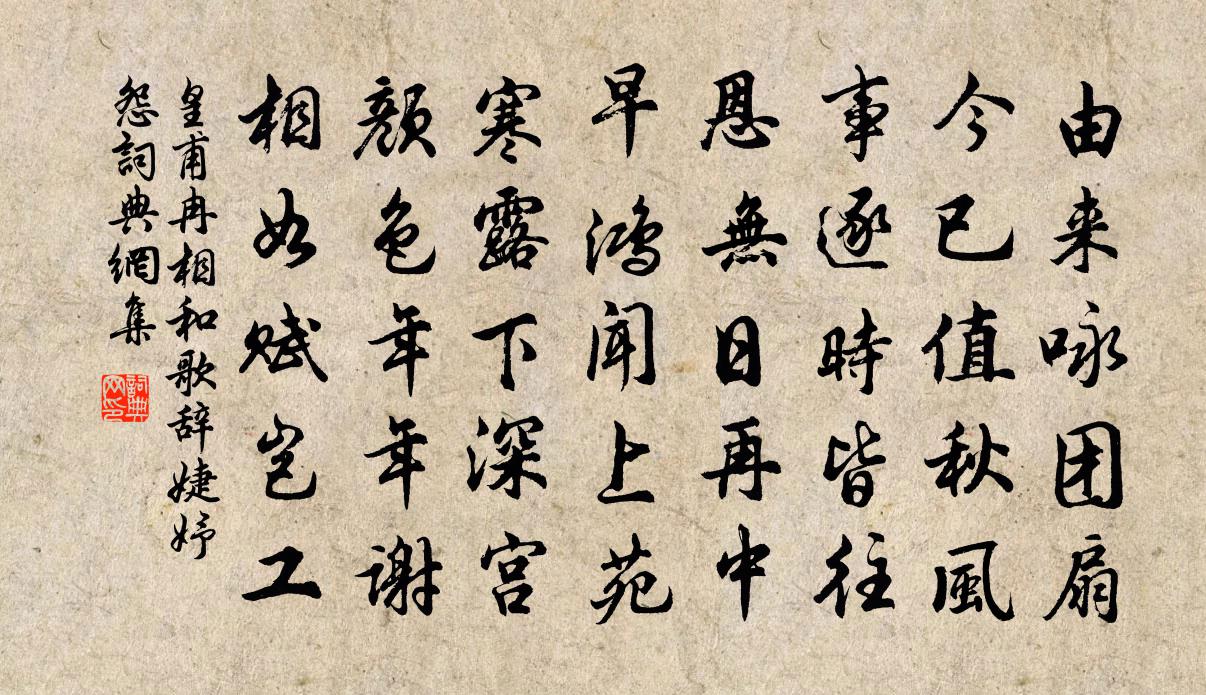 由来咏团扇
今已值秋風
事逐時皆往
恩無日再中
早鴻闻上苑
寒露下深宫
颜色年年谢
相如赋岂工
皇甫冉相和歌辞婕妤
怨詞典網集
詞典
网印